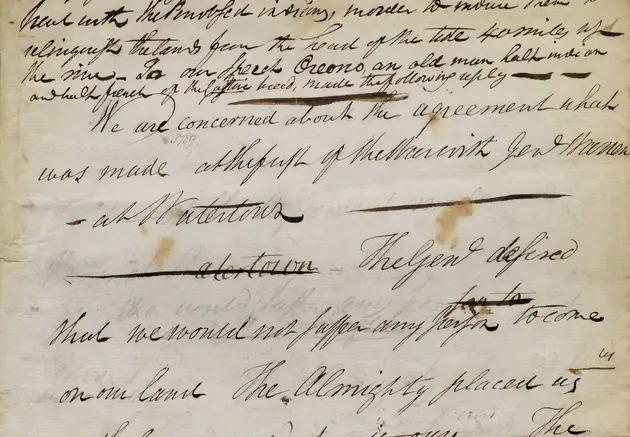 treat with the Penobscot indians, in order to induce them to
relinquish the lands from the head of the tide 40 miles up
the river — To our speech Oreono, an old man half indian
and half french of the Castine breed, made the following reply —
We are concerned about the agreement what
was made at the first of the War with Genl Warren
— at Watertown
atertown The Genl desired
for to
that we would not suffer any Person to come
us
on our land The Almighty placed us
The